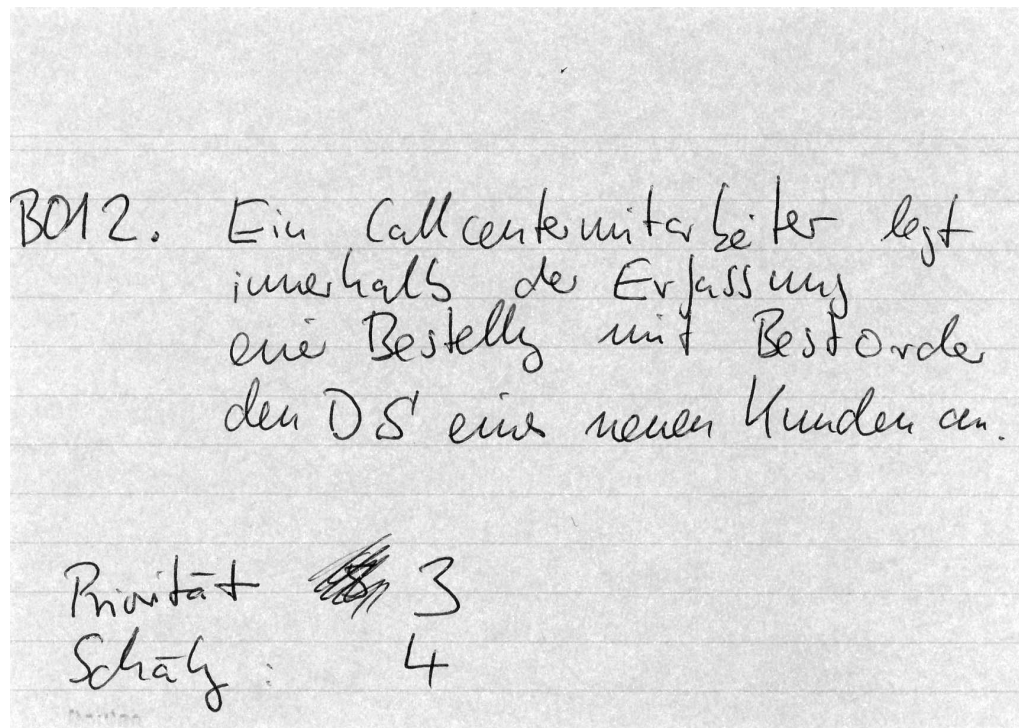 BO12. Ein Callcentermitarbeiter legt
innerhalb der Erfassung
einer Bestellg mit BestOrder
den DS eines neuen Kunden an.
Priorität 3
Schätzg: 4